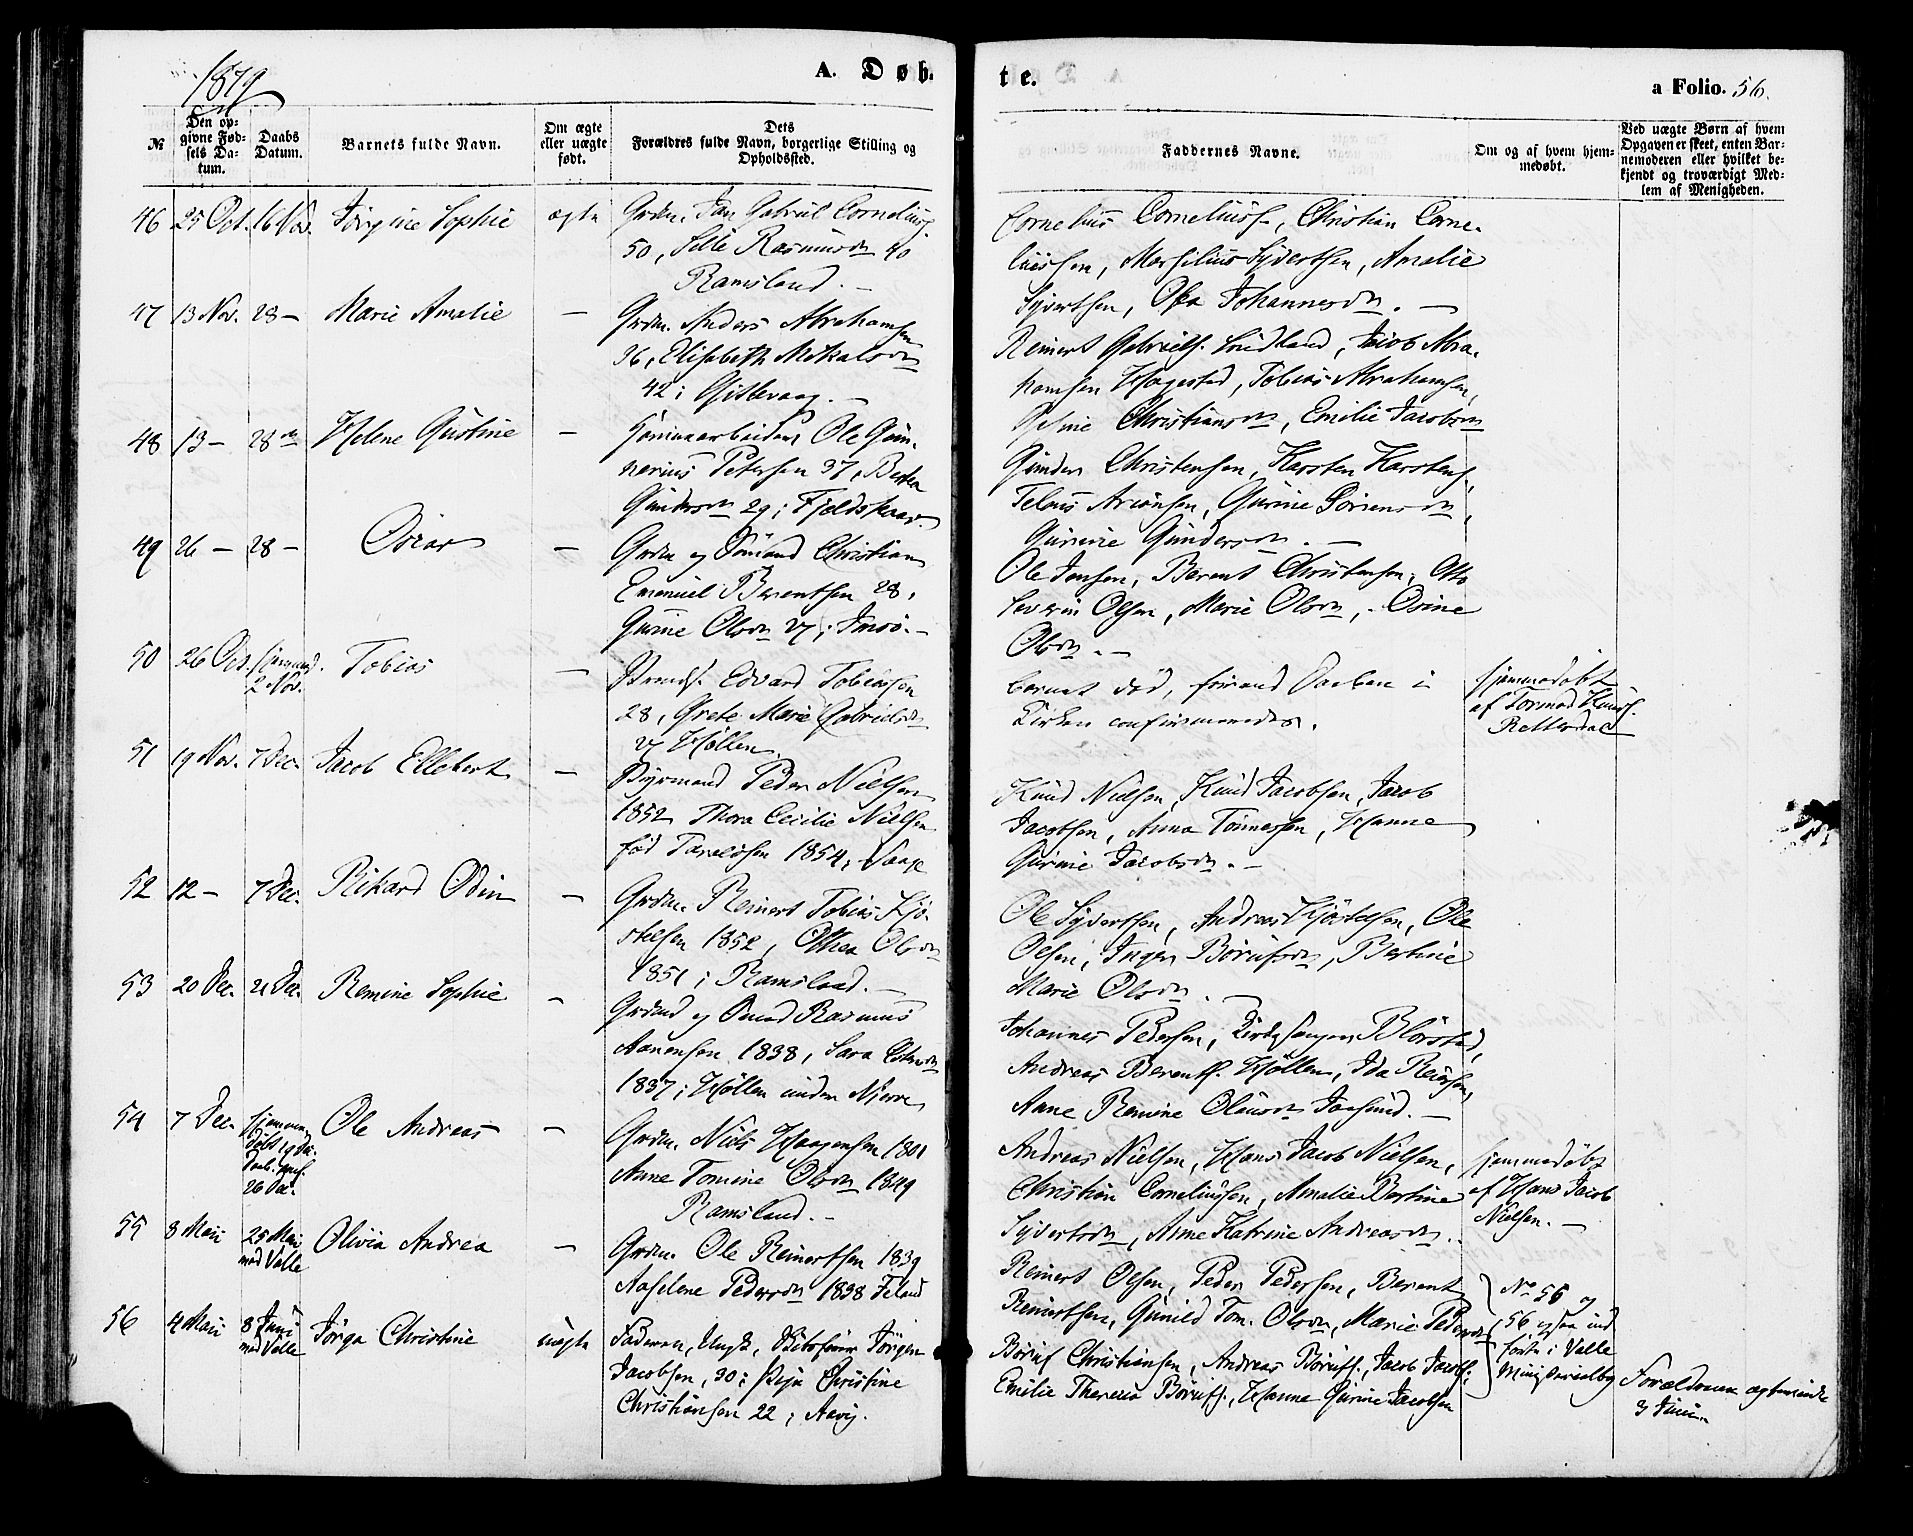 1879
A. Døb-
te.
a Folio. 56.
№
Den op-
givne Fød-
sels Da-
tum.
Daabs
Datum.
Barnets fulde Navn.
Om ægte
eller uægte
født.
Dets
Forældres fulde Navn, borgerlige Stilling og
Opholdssted.
Faddernes Navne.
Om og af hvem hjem-
medøbt.
Ved uægte Børn af hvem
Opgaven er skeet, enten Bar-
nemoderen eller hvilket be-
kjendt og troværdigt Med-
lem af Menigheden.
46 25 Oct. 16 Nov. Jørgine Sophie ægte Grdm. Jan Gabriel Corneliuss.
50, Rasmusdn 40
Ramsland. —
Cornelius Corneliuss., Christian Corne-
liussen, Marsilius Syvertsen, Amalie
Syvertsen, Johannesdn. —
47 13 Nov. 28 — Marie Amalie — Grdm. Anders Abrahamsen
36, Elisabeth Mikalsdn
42; Gislevaag. —
Reinert Gabriels. Lindland, Jacob Abra-
hamsen Hogestad, Tobias Abrahamsen,
Gesine Christiansdn, Emilie Jacobsdn
48 13 — 28de Helene Gustine — Ole Gun-
nerius Petersen 37, Berthe
Gundersdn 29; Fjeldskaar
Gunder Christensen, Karsten Karstens.,
Telous Arionsen, Gurine Sørensdn,
Gurine Gundersdn. —
49 26 — 28 — Oscar — Grdm og Sømand Christian
Emanuel Berentsen 28,
Gurine Olsdn 27; Imsø. —
Ole Jensen, Berent Christensen, Otto
Severin Olsen, Marie Olsdn, Osine
Olsdn. —
50 26 Oct. hjemmed.
2 Nov. Tobias — Strands. Edvard Tobiassen
28, Grete Marie Gabrielsdn
27 Høllen
Barnet død, førend Daaben i
Kirken confirmeredes.
hjemmedøbt
af Tormod Knuds.
Retterdal
51 19 Nov. 7 Dec. Jacob Ellebert — Styrmand Peder Nielsen
1852 Thora Cecilie Nielsen
fød Taraldsen 1854,
Knud Nielsen, Knud Jacobsen, Jacob
Jacobsen, Anna Tønnessen, Hanne
Gurine Jacobsdn. —
52 12 — 7 Dec. Rikard Odin — Grdm. Reinert Tobias Kjø-
stelsen 1852, Othea Olsdn
1851; Ramsland. —
Ole Syvertsen, Andreas Kjøstelsen, Ole
Olsen, Inger Børufsdn, Bertine
Marie Olsdn. —
53 20 Dec. 21 Dec. Remine Sophie — Grdmd og Sømd Rasmus
Aanensen 1838, Sara
1837; Høllen under Njerve
Johannes Pedersen, Kirkesanger Blørstad,
Andreas Berents. Høllen, Ida
Anne Remine Olausdn —
54 7 Dec. hjemme-
døbt 19 Dec.
26 Dec. Ole Andreas — Grdm. Niels Haagensen 1801
Anne Tomine Olsdn 1849
Ramsland. —
Andreas Nielsen, Hans Jacob Nielsen,
Christian Corneliussen, Amalie Bertine
Syvertsdn, Anne Katrine Andreasdn.
hjemmedøbt
af Hans Jacob
Nielsen. —
55 8 Maii 25 Mai
med Valle Olivia Andrea — Grdm. Ole Reinertsen 1839
Aaselene Pedersdn 1838
Reinert Olsen, Peder Pedersen, Berent
Reinertsen, Gunild Tom. Olsdn, Marie Pedersdn
No 55 og
56 ogsaa ind
ført i Valle
56 4 Maii 8 Juni
med Valle Jørga Christine uægte Faderen, Ungk. Jørgen
Jacobsen, 30; Pige Christine
Christiansen 22; Aavig.
Børuf Christiansen, Andreas Børufs., Jacob Jacobs.,
Emilie Theresia Børufs., Hanne Gurine Jacobsen
Forældrene ægteviede